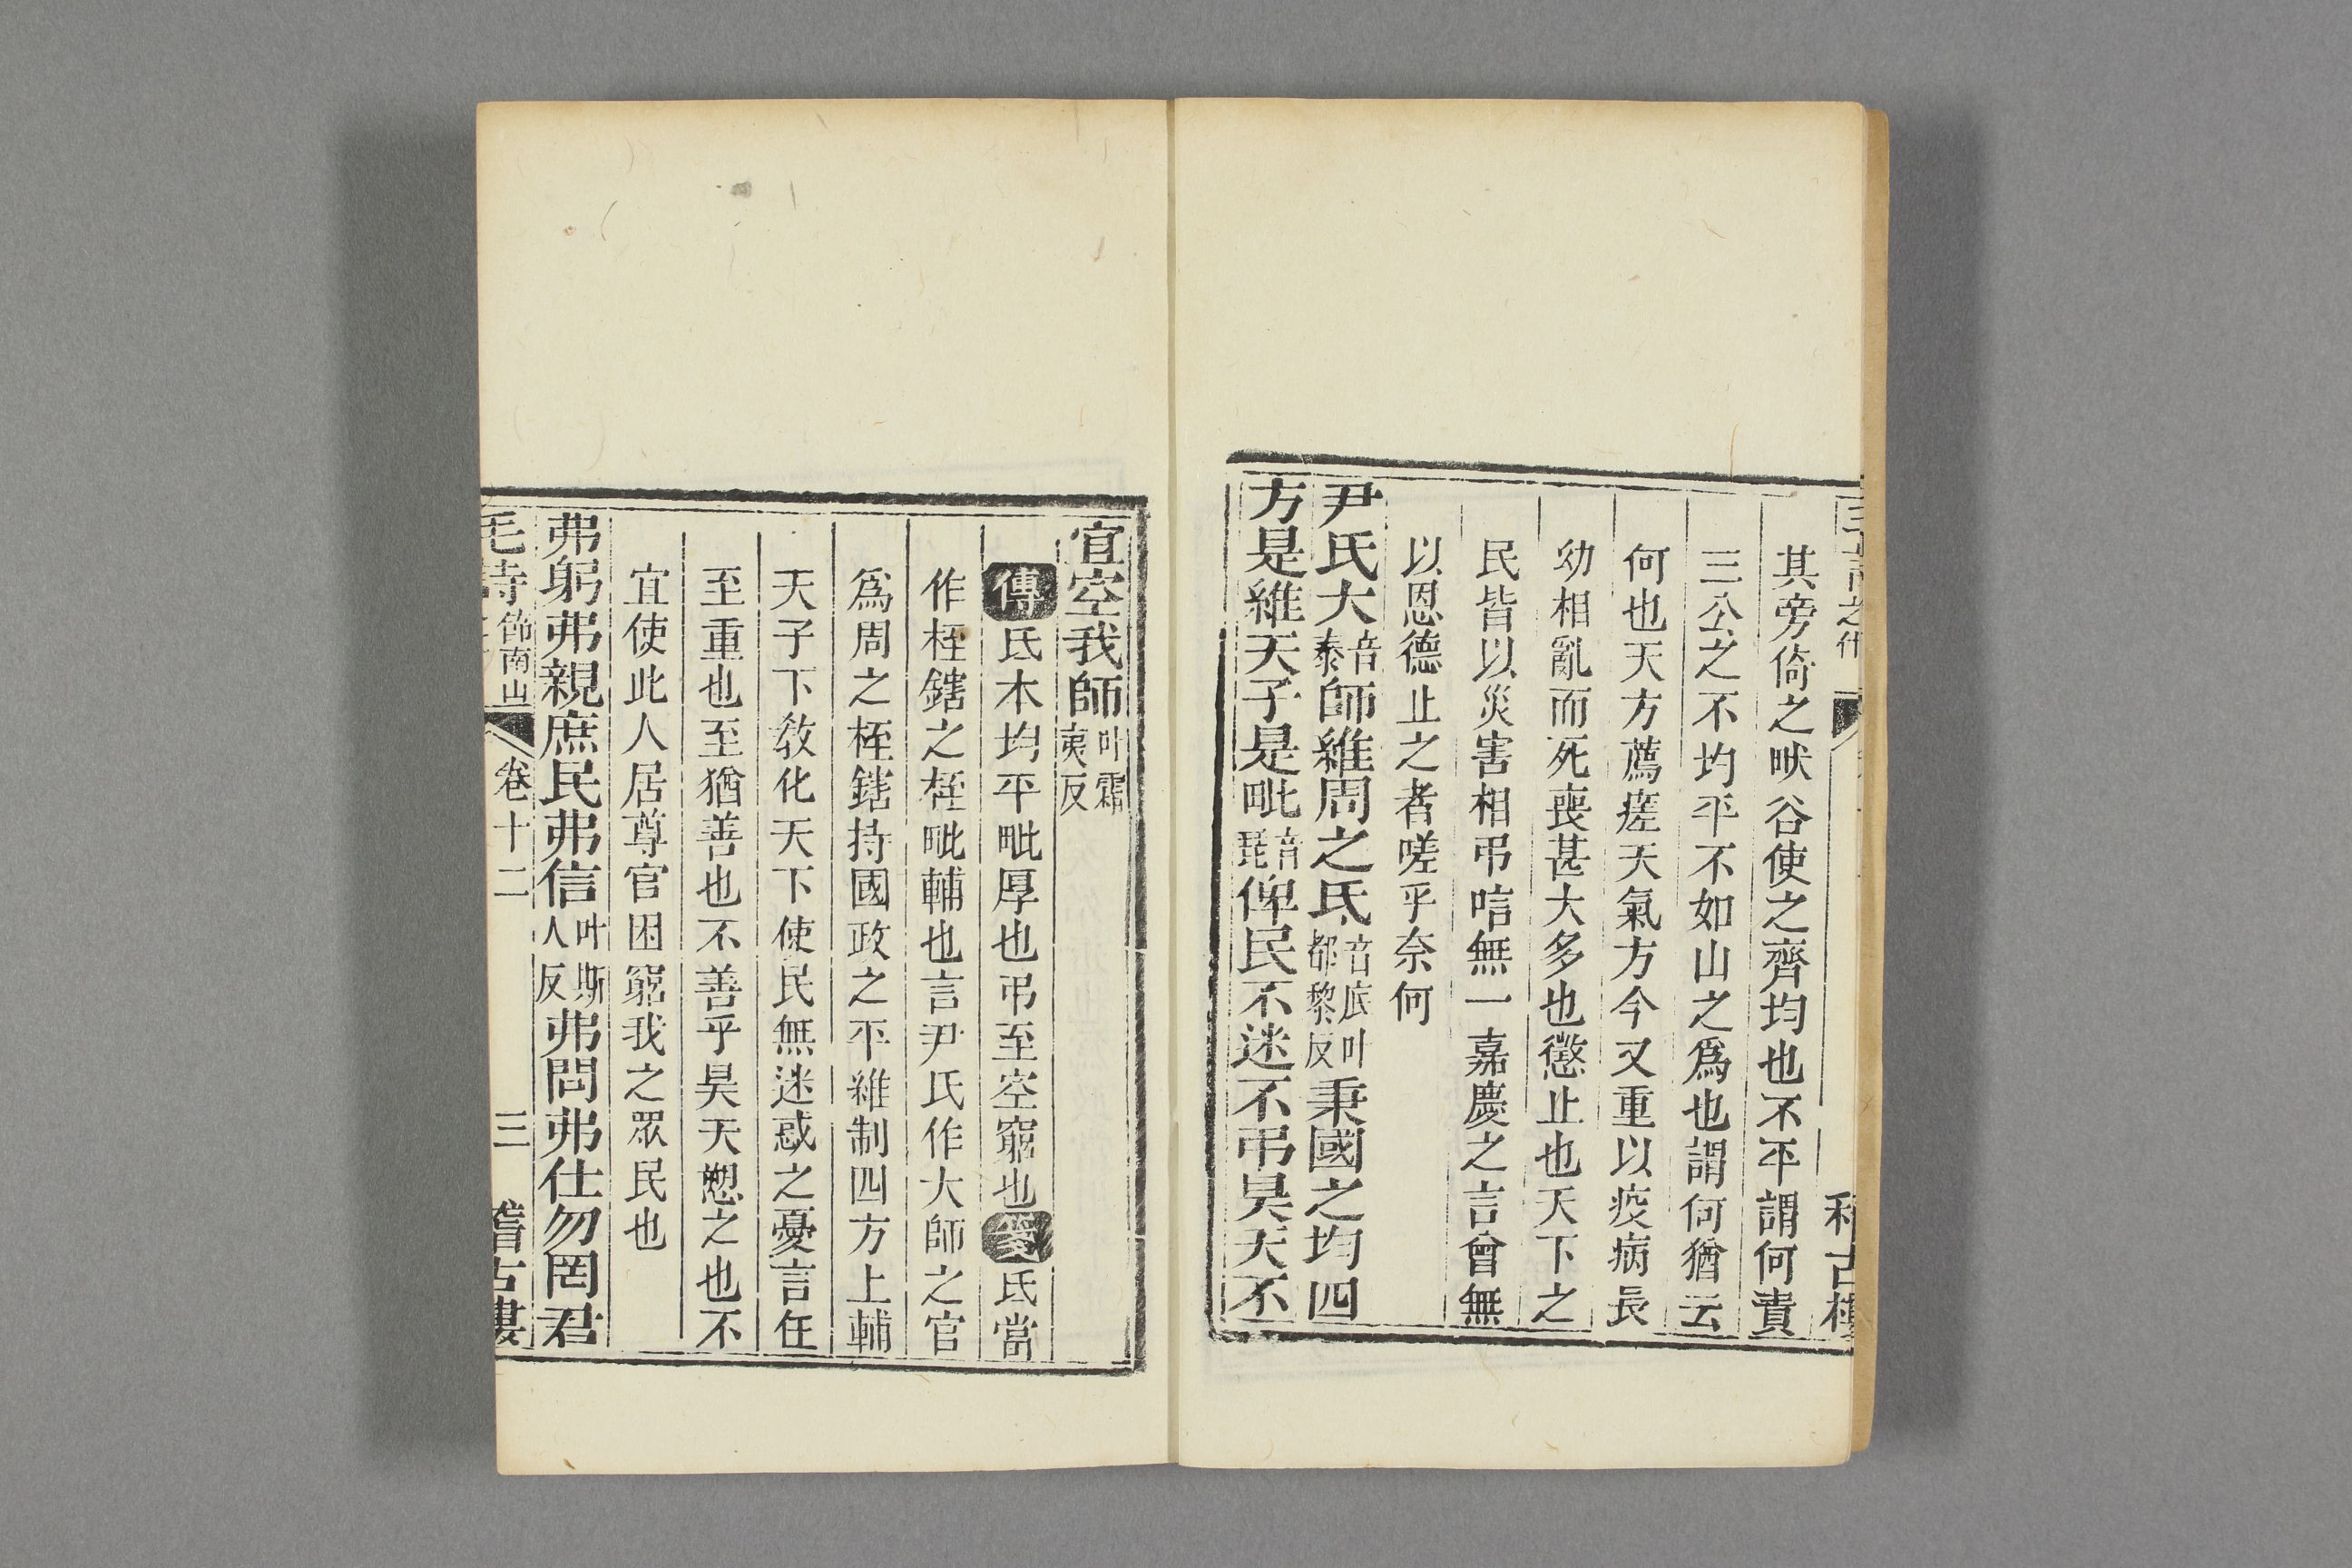 其旁倚之畎谷使之齊均也不平謂何責
三公之不均平不如山之爲也謂何猶云
何也天方薦瘥天氣方今又重以疫病長
幼相亂而死喪甚大多也懲止也天下之
民皆以災害相弔唁無一嘉慶之言曾無
以恩德止之者嗟乎奈何
尹氏大音泰師維周之氐音底叶都黎反秉國之均四
方是維天子是毗音琵俾民不迷不弔昊天不
宜空我師叶霜夷反
傳氐本均平毗厚也弔至空窮也箋氐當
作桎鎋之桎毗輔也言尹氏作大師之官
爲周之桎鎋持國政之平維制四方上輔
天子下敎化天下使民無迷惑之憂言任
至重也至猶善也不善乎昊天愬之也不
宜使此人居尊官困窮我之眾民也
弗躬弗親庶民弗信叶斯人反弗問弗仕勿罔君
毛詩 節南山 卷十二 三 稽古樓